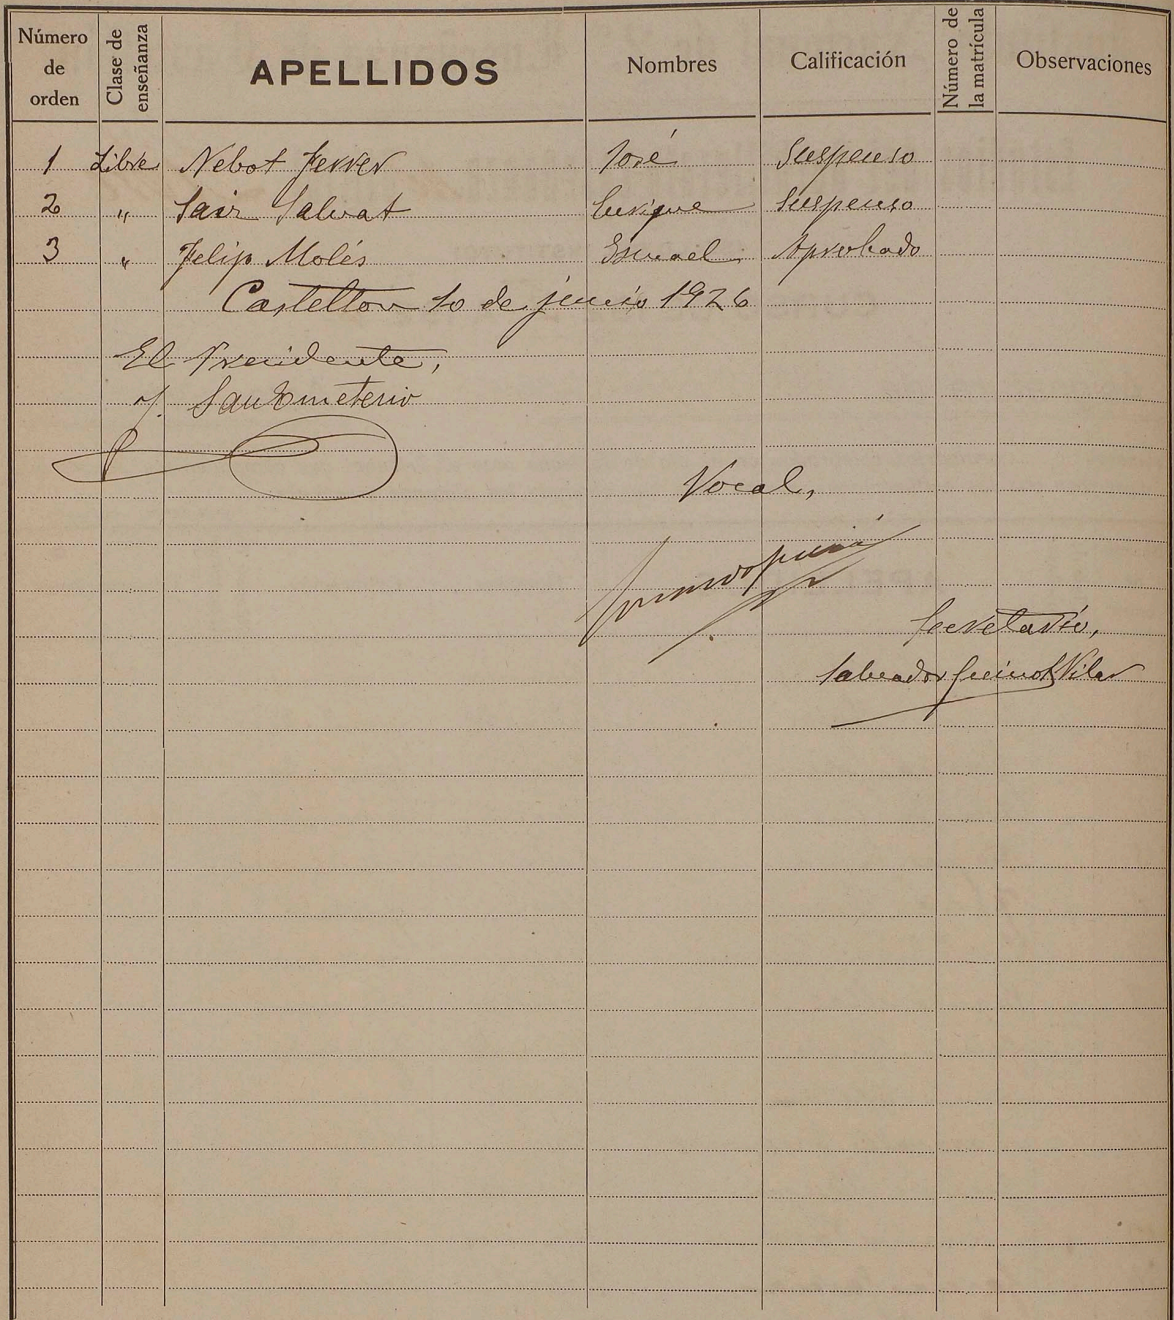 Número de orden Clase de enseñanza APELLIDOS Nombres Calificación Número de la matrícula Observaciones
1 Libre Nebot Ferrer José Suspenso
2 " Sanz Salvat Enrique Suspenso
3 " Felip Molés Ismael Aprobado
Castellón 10 de junio 1926
El Presidente,
J. Sanz Emeterio
Vocal,
Secretario,
Salvador Guinot Vilar